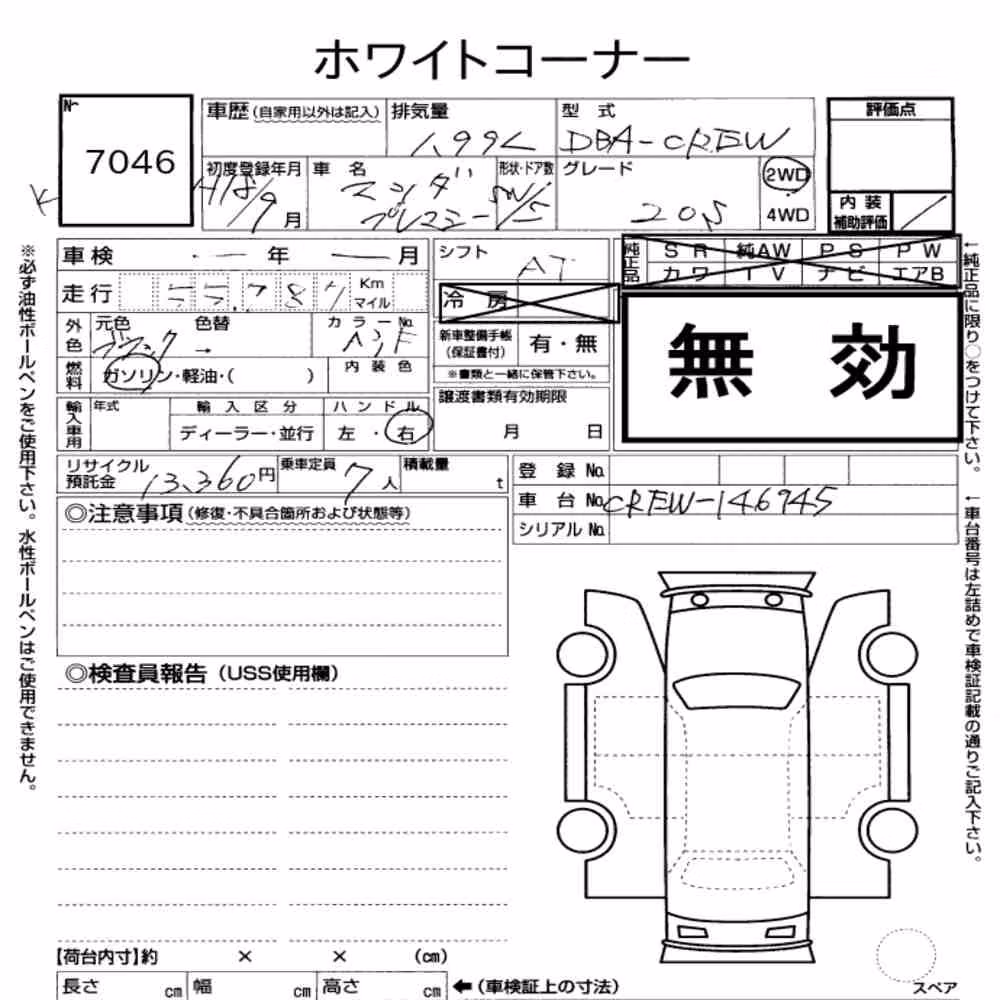 ホワイトコーナー
№
7046
車歴(自家用以外は記入)
排気量
1,99L
型 式
DBA-CREW
評価点
初度登録年月
H18/9月
車 名
マツダ
プレマシー
形状・ドア数
SW/5
グレード
20S
2WD
4WD
内 装
補助評価
※必ず油性ボールペンをご使用下さい。水性ボールペンはご使用できません。
車検 ー年 ー月
シフト
AT
純正品
SR 純AW PS PW
カワ TV ナビ エアB
走行 55,787 Km マイル
冷 房
外色
元色 色替
ブラック →
カラーNo.
新車整備手帳
(保証書付)
有・無
※書類と一緒に保管下さい。
無 効
燃料
ガソリン・軽油・( )
内 装 色
譲渡書類有効期限
月 日
輸入車用
年式
輸 入 区 分
ディーラー・並行
ハ ン ド ル
左 ・ 右
↑純正品に限り○をつけて下さい。
リサイクル
預託金
13,360円
乗車定員
7人
積載量
t
登 録 No.
車 台 No. CREW-146945
シリアル No.
↑車台番号は左詰めで車検証記載の通りご記入下さい。
◎注意事項(修復・不具合箇所および状態等)
◎検査員報告(USS使用欄)
【荷台内寸】約 × × (cm)
長さ cm 幅 cm 高さ cm
←(車検証上の寸法)
スペア